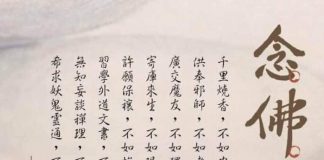 念佛
千里燒香，不如
供奉邪師，不如
廣交魔友，不如
寄庫來生，不如
許願保禳，不如
習學外道文書，
無知妄談禪理，
希求妖鬼靈通，